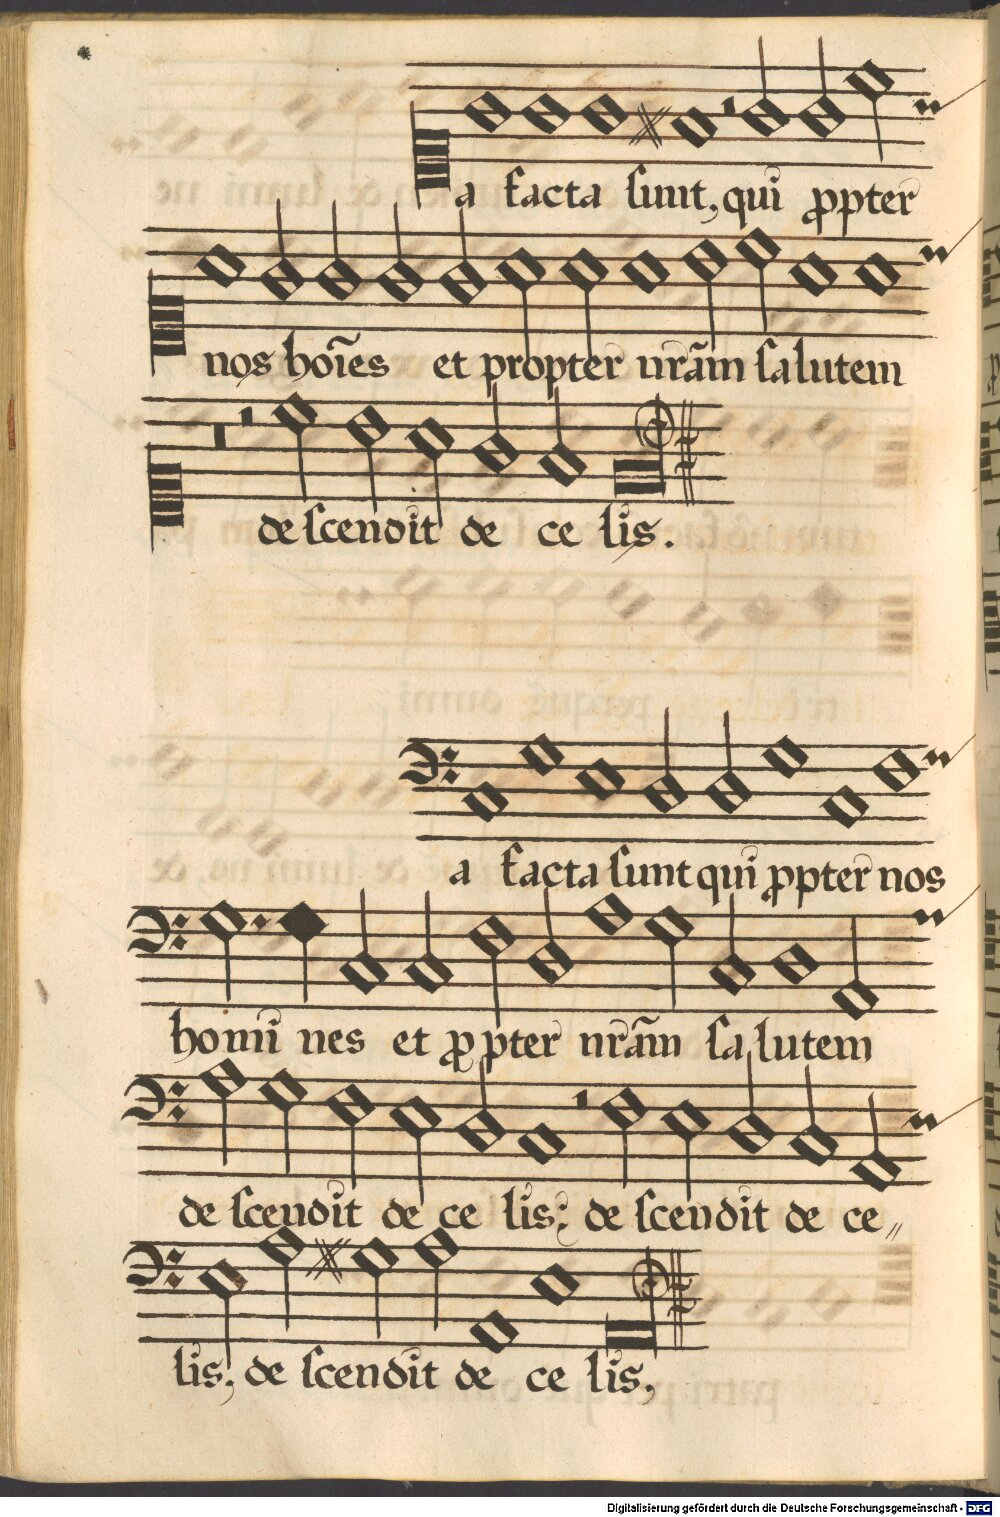 a facta sunt, qui ꝓpter
nos hoīes et propter nr̄am salutem
descendit de ce lis.
a facta sunt qui ꝓpter nos
homi nes et ꝓpter nr̄am salutem
descendit de ce lis; descendit de ce„
lis; descendit de ce lis,
Digitalisierung gefördert durch die Deutsche Forschungsgemeinschaft - DFG